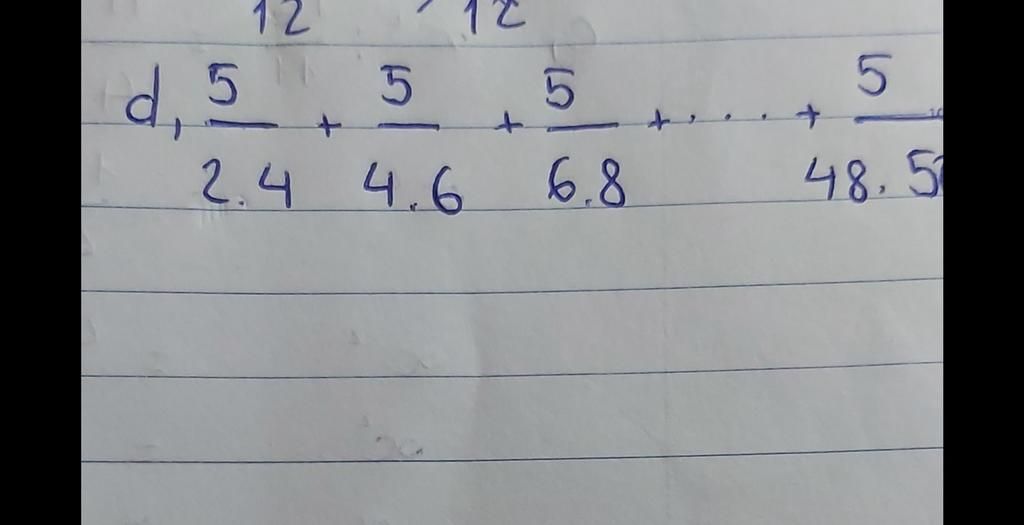 12 12
d, 5/2.4 + 5/4.6 + 5/6.8 + ... + 5/48.5